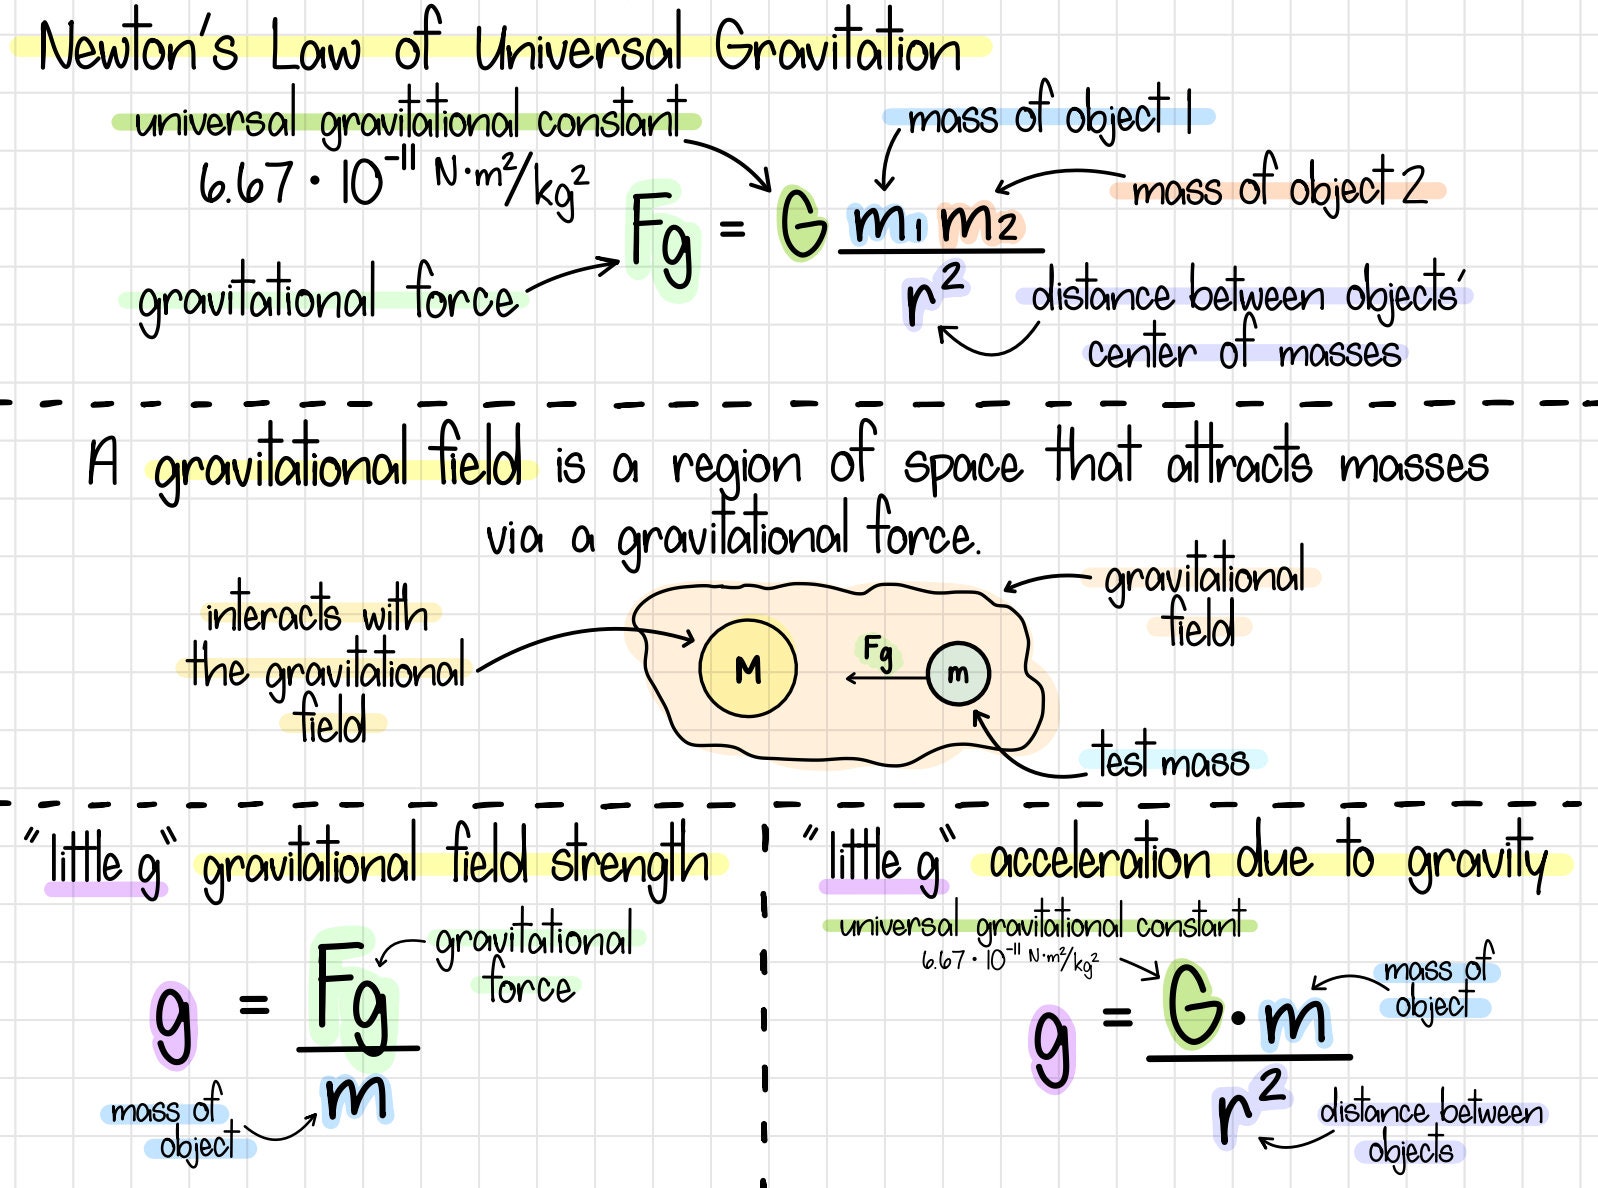 Newton's Law of Universal Gravitation
universal gravitational constant
6.67 · 10⁻¹¹ N·m²/kg²
mass of object 1
mass of object 2
Fg = G m₁ m₂
r²
gravitational force
distance between objects'
center of masses
A gravitational field is a region of space that attracts masses
via a gravitational force.
interacts with
the gravitational
field
M
Fg
m
gravitational
field
test mass
"little g" gravitational field strength
g = Fg
m
gravitational
force
mass of
object
"little g" acceleration due to gravity
universal gravitational constant
6.67 · 10⁻¹¹ N·m²/kg²
g = G · m
r²
mass of
object
distance between
objects